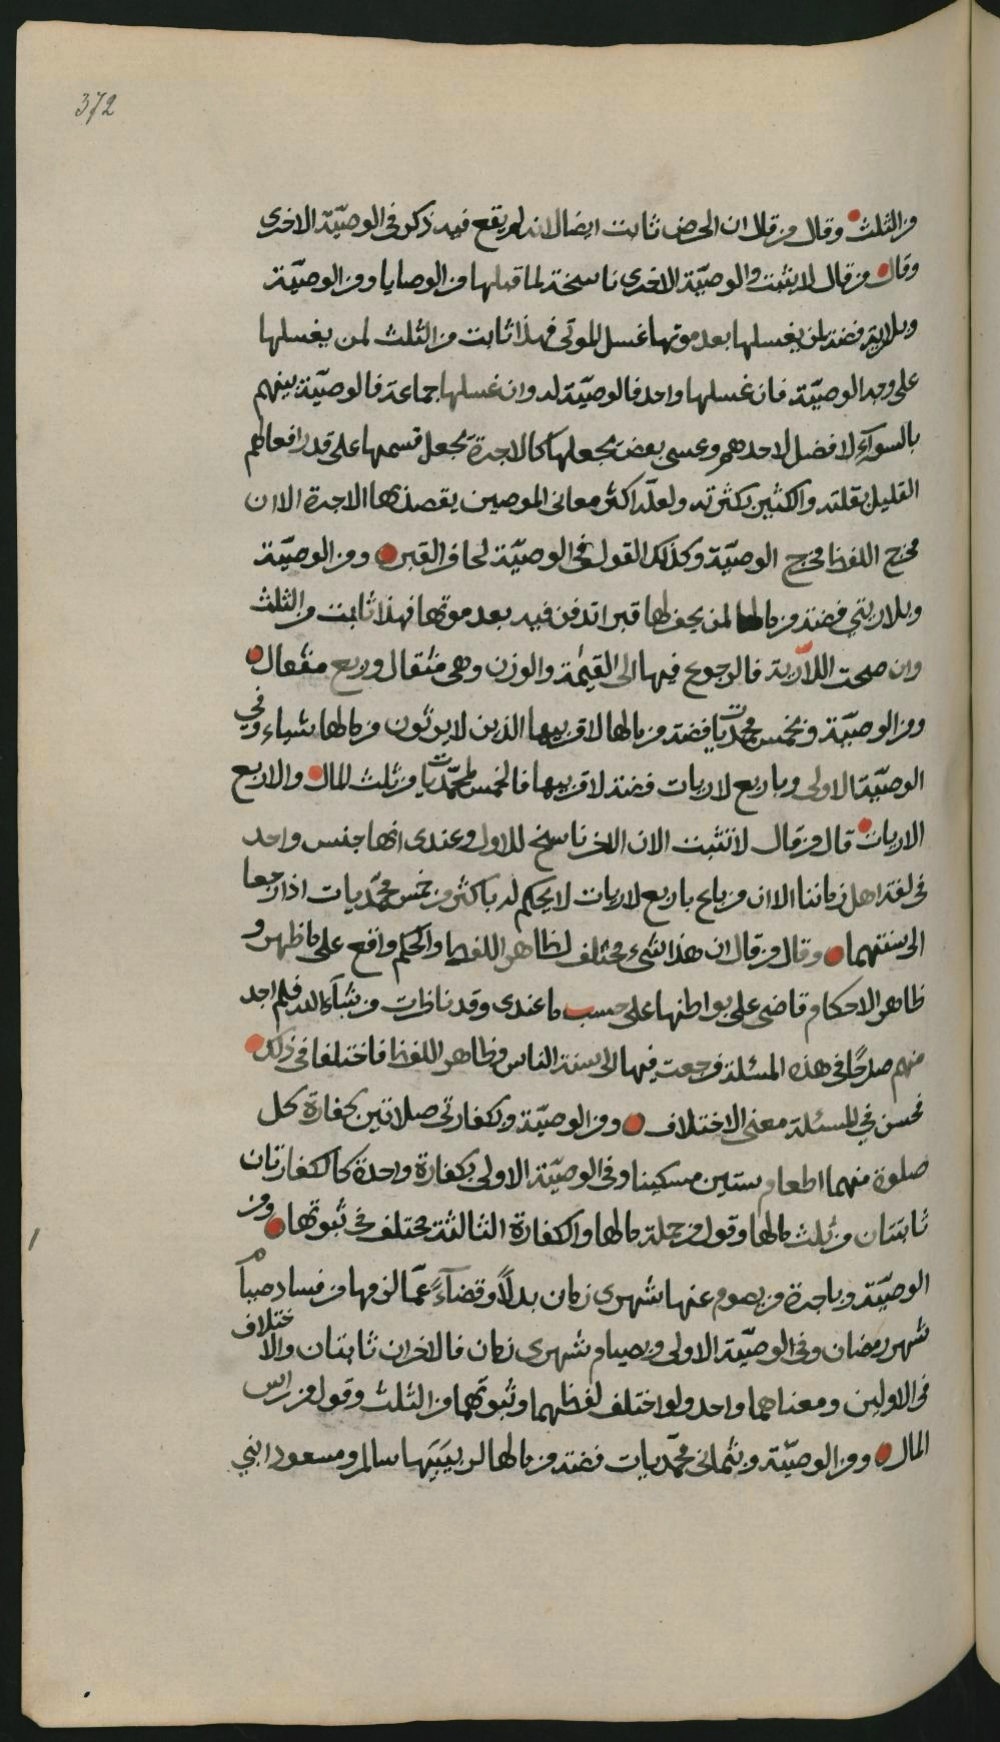 372
من الثلث وقال من قال ان الحوض ثابت ايضا لانه لم يقع فيه ذكر في الوصيّة الاخرى
وقال من قال لا يثبت والوصيّة الاخرى ناسخة لما قبلها من الوصايا ومن الوصيّة
وبلارية فضة لمن يغسلها بعد موتها غسل الموتى فهذا ثابت من الثلث لمن يغسلها
على وجه الوصيّة فان غسلها واحد فالوصيّة له وان غسلها جماعة فالوصيّة بينهم
بالسوآء لا فضل لاحدهم وعسى بعض يجعلها كالاجرة يجعل قسمها على قدر افعالهم
القليل بقلته والكثير بكثرته ولعلّه اكثر معاني الموصين يقصد بها الاجرة الا ان
مخرج اللفظ مخرج الوصيّة وكذلك القول في الوصيّة لحافر القبر ومن الوصيّة
وبلاريتي فضة من مالها لمن يحفر لها قبرا تدفن فيه بعد موتها فهذا ثابت من الثلث
وان صحت اللآرية فالرجوع فيها الى القيمة والوزن وهى مثقال وربع مثقال
ومن الوصيّة وبخمس محمديات فضة من مالها لاقربيها الذين لا يرثون من مالها شياء وفي
الوصيّة الاولى وباربع لاريات فضة لاقربيها فالخمس المحمّديات من ثلث المال والاربع
الاريات قال من قال لا تثبت الان الاخر ناسخ للاول وعندى انها جنس واحد
في لغة اهل زماننا الا ان من باع باربع لاريات لا يحكم له باكثر من خمس محمّديات اذا رجعا
الى سنتهما وقال من قال ان هذا شيء مختلف لظاهر اللفظ والحكم واقع على ما ظهر و
ظاهر الاحكام قاضى على بواطنها على حسب ما عندى وقد ناظرت من شآء الله فلم اجد
منهم صلاحًا في هذه المسئلة فرجعت فيها الى سنة الناس وظاهر اللفظ فاختلفا في ذلك
فحسن في المسئلة معنى الاختلاف ومن الوصيّة وبكفارتى صلاتين كفارة كل
صلوة منهما اطعام ستين مسكينا وفى الوصيّة الاولى بكفارة واحدة كالكفارتان
ثابتتان من ثلث مالها وقول من جملة مالها والكفارة الثالثة مختلف في ثبوتها ومن
الوصيّة وباجرة من يصوم عنها شهري زمان بدلاً وقضآءً عمّا لزمها من فساد صيام
شهر رمضان وفي الوصيّة الاولى وبصيام شهرى زمان فالاخران ثابتان والاختلاف
في الاولين ومعناهما واحد ولو اختلف لفظهما وثبوتهما من الثلث وقول من راس
المال ومن الوصيّة وبثماني محمّديات فضة من مالها لربيبَيها سالم ومسعود ابني